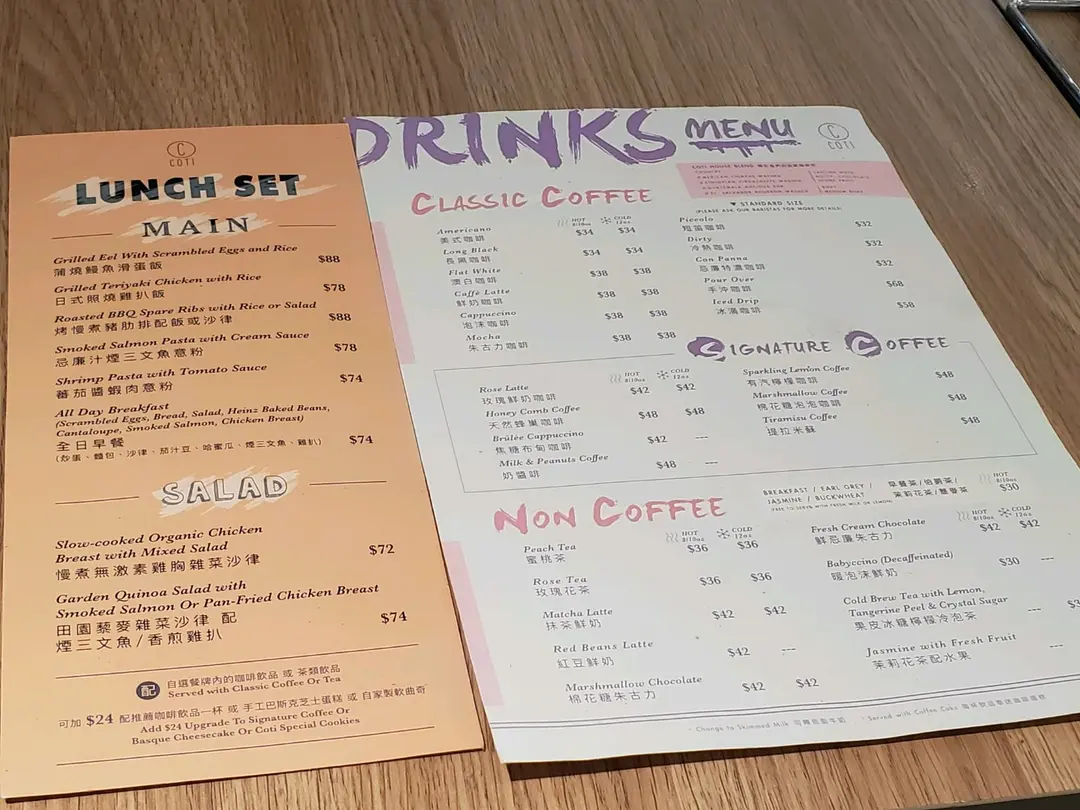 C
COTI
LUNCH SET
MAIN
Grilled Eel With Scrambled Eggs and Rice
蒲燒鰻魚滑蛋飯 $88
Grilled Teriyaki Chicken with Rice
日式照燒雞扒飯 $78
Roasted BBQ Spare Ribs with Rice or Salad
烤慢煮豬肋排配飯或沙律 $88
Smoked Salmon Pasta with Cream Sauce
忌廉汁煙三文魚意粉 $78
Shrimp Pasta with Tomato Sauce
蕃茄醬蝦肉意粉 $74
All Day Breakfast
(Scrambled Eggs, Bread, Salad, Heinz Baked Beans,
Cantaloupe, Smoked Salmon, Chicken Breast)
全日早餐 $74
(炒蛋、麵包、沙律、茄汁豆、哈蜜瓜、煙三文魚、雞扒)
SALAD
Slow-cooked Organic Chicken
Breast with Mixed Salad $72
慢煮無激素雞胸雜菜沙律
Garden Quinoa Salad with
Smoked Salmon Or Pan-Fried Chicken Breast
田園藜麥雜菜沙律 配 $74
煙三文魚/香煎雞扒
配 自選餐牌內的咖啡飲品 或 茶類飲品
Served with Classic Coffee Or Tea
可加 $24 配推薦咖啡飲品一杯 或 手工巴斯克芝士蛋糕 或 自家製軟曲奇
Add $24 Upgrade To Signature Coffee Or
Basque Cheesecake Or Coti Special Cookies
DRINKS MENU
C
COTI
COTI HOUSE BLEND
CLASSIC COFFEE
HOT 8/10oz COLD 12oz
Americano $34 $34
美式咖啡
Long Black $34 $34
長黑咖啡
Flat White $38 $38
澳白咖啡
Caffè Latte $38 $38
鮮奶咖啡
Cappuccino $38 $38
泡沫咖啡
Mocha $38 $38
朱古力咖啡
▼ STANDARD SIZE
(PLEASE ASK OUR BARISTAS FOR MORE DETAILS)
Piccolo $32
短笛咖啡
Dirty $32
冷熱咖啡
Con Panna $32
忌廉特濃咖啡
Pour Over $68
手沖咖啡
Iced Drip $58
冰滴咖啡
SIGNATURE COFFEE
HOT 8/10oz COLD 12oz
Rose Latte $42 $42
玫瑰鮮奶咖啡
Honey Comb Coffee $48 $48
天然蜂巢咖啡
Brûlée Cappuccino $42 ---
焦糖布甸咖啡
Milk & Peanuts Coffee $48 ---
奶醬咖啡
Sparkling Lemon Coffee $48
有汽檸檬咖啡
Marshmallow Coffee $48
棉花糖泡泡咖啡
Tiramisu Coffee $48
提拉米蘇
NON COFFEE
BREAKFAST / EARL GREY / 早餐茶/伯爵茶/
JASMINE / BUCKWHEAT 茉莉花茶/蕎麥茶
(FREE TO SERVE WITH FRESH MILK OR LEMON)
HOT 8/10oz COLD 12oz
$30
HOT 8/10oz COLD 12oz
Peach Tea $36 $36
蜜桃茶
Rose Tea $36 $36
玫瑰花茶
Matcha Latte $42 $42
抹茶鮮奶
Red Beans Latte $42 ---
紅豆鮮奶
Marshmallow Chocolate $42 $42
棉花糖朱古力
HOT 8/10oz COLD 12oz
Fresh Cream Chocolate $42 $42
鮮忌廉朱古力
Babyccino (Decaffeinated) $30 ---
暖泡沫鮮奶
Cold Brew Tea with Lemon,
Tangerine Peel & Crystal Sugar ---
果皮冰糖檸檬冷泡茶
Jasmine with Fresh Fruit ---
茉莉花茶配水果
Change to Skimmed Milk 可轉脫脂牛奶
Served with Coffee Cake